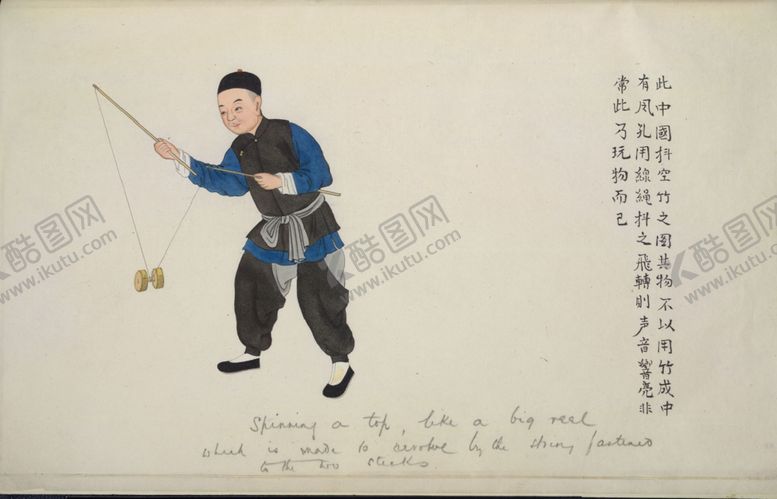 此中國抖空竹之圖其物不以用竹成中
有风孔用線繩抖之飛轉則声音響亮非
常此乃玩物而已
Spinning a top, like a big reel
which is made to revolve by the string fastened
to the two sticks.
酷图网
www.ikutu.com
酷图网
www.ikutu.com
酷图网
www.ikutu.com